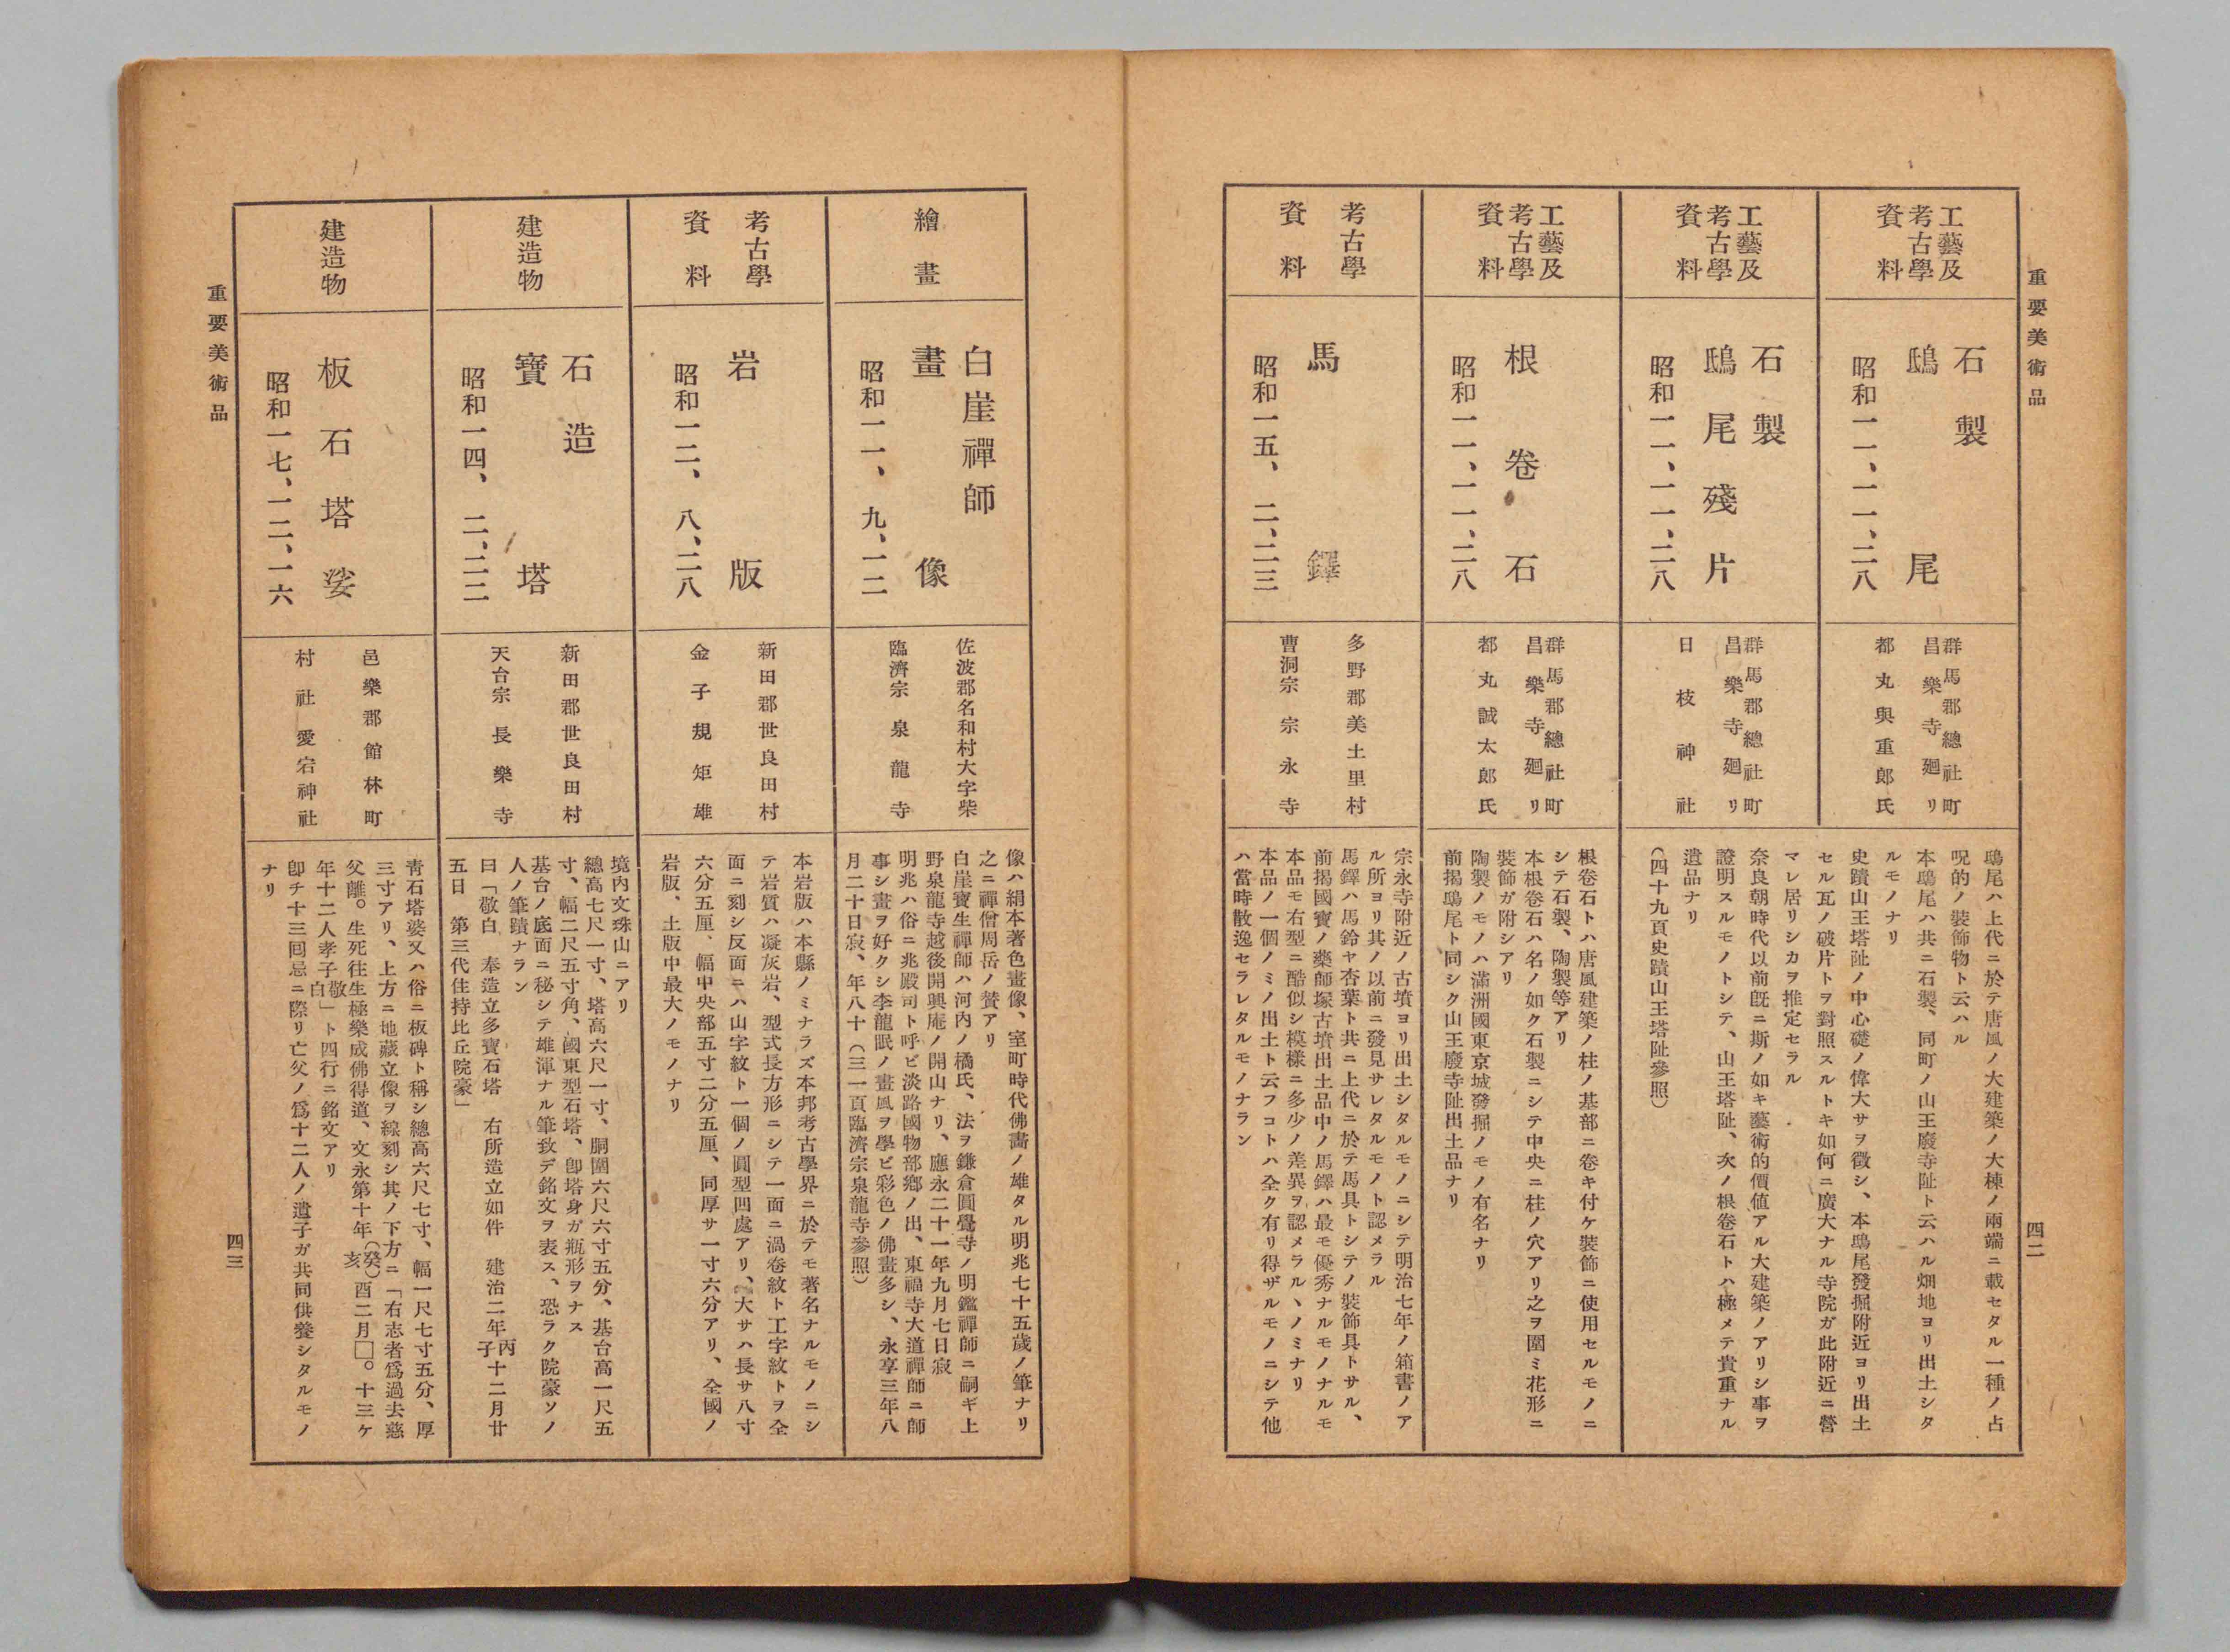 重要美術品
工藝及
考古學
資料
石製
鴟尾
昭和一一、一一、二八
群馬郡總社町
昌樂寺廻リ
都丸與重郎氏
鴟尾ハ上代ニ於テ唐風ノ大建築ノ大棟ノ兩端ニ載セタル一種ノ占
呪的ノ裝飾物ト云ハル
本鴟尾ハ共ニ石製、同町ノ山王廢寺阯ト云ハル畑地ヨリ出土シタ
ルモノナリ
工藝及
考古學
資料
石製
鴟尾殘片
昭和一一、一一、二八
群馬郡總社町
昌樂寺廻リ
日枝神社
史蹟山王塔阯ノ中心礎ノ偉大サヲ徵シ、本鴟尾發掘附近ヨリ出土
セル瓦ノ破片トヲ對照スルトキ如何ニ廣大ナル寺院ガ此附近ニ營
マレ居リシカヲ推定セラル
奈良朝時代以前旣ニ斯ノ如キ藝術的價値アル大建築ノアリシ事ヲ
證明スルモノトシテ、山王塔阯、次ノ根卷石トハ極メテ貴重ナル
遺品ナリ
（四十九頁史蹟山王塔阯參照）
工藝及
考古學
資料
根卷石
昭和一一、一一、二八
群馬郡總社町
昌樂寺廻リ
都丸誠太郎氏
根卷石トハ唐風建築ノ柱ノ基部ニ卷キ付ケ裝飾ニ使用セルモノニ
シテ石製、陶製等アリ
本根卷石ハ名ノ如ク石製ニシテ中央ニ柱ノ穴アリ之ヲ圍ミ花形ニ
裝飾ガ附シアリ
陶製ノモノハ滿洲國東京城發掘ノモノ有名ナリ
前揭鴟尾ト同シク山王廢寺阯出土品ナリ
考古學
資料
馬鐸
昭和一五、二、二三
多野郡美土里村
曹洞宗 宗永寺
宗永寺附近ノ古墳ヨリ出土シタルモノニシテ明治七年ノ箱書ノア
ル所ヨリ其ノ以前ニ發見サレタルモノト認メラル
馬鐸ハ馬鈴ヤ杏葉ト共ニ上代ニ於テ馬具トシテノ裝飾具トサル、
前揭國寶ノ藥師塚古墳出土品中ノ馬鐸ハ最モ優秀ナルモノナルモ
本品モ右型ニ酷似シ模樣ニ多少ノ差異ヲ認メラルヽノミナリ
本品ノ一個ノミノ出土ト云フコトハ全ク有リ得ザルモノニシテ他
ハ當時散逸セラレタルモノナラン
四二
繪畫
白崖禪師
畫像
昭和一一、九、一二
佐波郡名和村大字柴
臨濟宗 泉龍寺
像ハ絹本著色畫像、室町時代佛畵ノ雄タル明兆七十五歲ノ筆ナリ
之ニ禪僧周岳ノ賛アリ
白崖寶生禪師ハ河內ノ橘氏、法ヲ鎌倉圓覺寺ノ明鑑禪師ニ嗣ギ上
野泉龍寺越後開興庵ノ開山ナリ、應永二十一年九月七日寂
明兆ハ俗ニ兆殿司ト呼ビ淡路國物部鄉ノ出、東福寺大道禪師ニ師
事シ畫ヲ好クシ李龍眠ノ畫風ヲ學ビ彩色ノ佛畫多シ、永享三年八
月二十日寂、年八十（三一頁臨濟宗泉龍寺參照）
考古學
資料
岩版
昭和一二、八、二八
新田郡世良田村
金子規矩雄
本岩版ハ本縣ノミナラズ本邦考古學界ニ於テモ著名ナルモノニシ
テ岩質ハ凝灰岩、型式長方形ニシテ一面ニ渦卷紋ト工字紋トヲ全
面ニ刻シ反面ニハ山字紋ト一個ノ圓型凹處アリ、大サハ長サ八寸
六分五厘、幅中央部五寸二分五厘、同厚サ一寸六分アリ、全國ノ
岩版、土版中最大ノモノナリ
建造物
石造
寶塔
昭和一四、二、二二
新田郡世良田村
天台宗 長樂寺
境內文珠山ニアリ
總高七尺一寸、塔高六尺一寸、胴圍六尺六寸五分、基台高一尺五
寸、幅二尺五寸角、國東型石塔、卽塔身ガ瓶形ヲナス
基台ノ底面ニ秘シテ雄渾ナル筆致デ銘文ヲ表ス、恐ラク院豪ソノ
人ノ筆蹟ナラン
曰「敬白 奉造立多寶石塔 右所造立如件 建治二年丙子十二月廿
五日 第三代住持比丘院豪」
建造物
板石塔婆
昭和一七、一二、一六
邑樂郡館林町
村社愛宕神社
靑石塔婆又ハ俗ニ板碑ト稱シ總高六尺七寸、幅一尺七寸五分、厚
三寸アリ、上方ニ地藏立像ヲ線刻シ其ノ下方ニ「右志者爲過去慈
父離。生死往生極樂成佛得道、文永第十年（癸亥）酉二月□。十三ケ
年十二人孝子敬白」ト四行ニ銘文アリ
卽チ十三囘忌ニ際リ亡父ノ爲十二人ノ遺子ガ共同供養シタルモノ
ナリ
重要美術品
四三